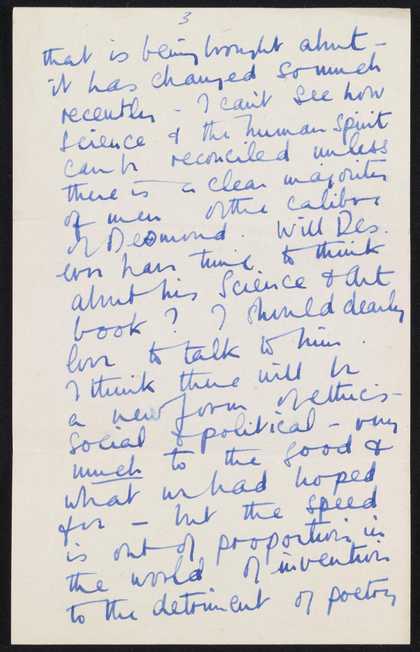 3
that is being brought about -
it has changed so much
recently - I can't see how
Science & the human spirit
can be reconciled unless
there is a clear majority
of men of the calibre
of Desmond. Will Des.
ever have time to think
about his Science & Art
book? I should dearly
love to talk to him.
I think there will be
a new form of ethics -
social & political - very
much to the good &
what we had hoped
for - but the speed
is out of proportion in
the world of invention
to the detriment of poetry